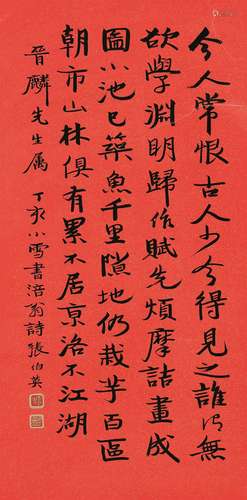 今人常恨古人少今得見之誰謂無
欲學淵明歸作賦先煩摩詰畫成
圖小池已築魚千里隙地仍栽芋百區
朝市山林俱有累不居京洛不江湖
晉麟先生屬 丁亥小雪書涪翁詩張伯英